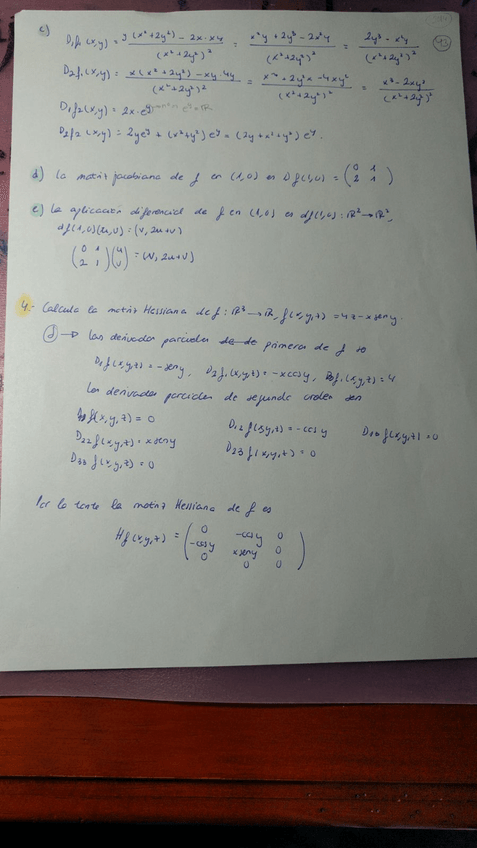 c) D₁f₁(x,y) = y(x²+2y²) - 2x·xy / (x²+2y²)² = x²y + 2y³ - 2x²y / (x²+2y²)² = 2y³ - x²y / (x²+2y²)²
D₂f₁(x,y) = x(x²+2y²) - xy·4y / (x²+2y²)² = + 2y²x - 4xy² / (x²+2y²)² = x³ - 2xy² / (x²+2y²)²
D₁f₂(x,y) = 2x·e^y
D₂f₂(x,y) = 2ye^y + (x²+y²)e^y = (2y+x²+y²)e^y.
d) La matriz jacobiana de f en (1,0) es Df(1,0) = (0 1
2 1)
e) La aplicación diferencial de f en (1,0) es df(1,0): ℝ² → ℝ²,
df(1,0)(u,v) = (v, 2u+v)
(0 1
2 1)(u
v) = (v, 2u+v)
4.- Calcula la matriz Hessiana de f: ℝ³ → ℝ, f(x,y,z) = 4z - x sen y.
→ Las derivadas parciales primeras de f so
D₁f(x,y,z) = -sen y, D₂f(x,y,z) = -x cos y, D₃f(x,y,z) = 4
Las derivadas parciales de segundo orden son
f(x,y,z) = 0 D₁₂f(x,y,z) = -cos y D₁₃f(x,y,z) = 0
D₂₂f(x,y,z) = x sen y D₂₃f(x,y,z) = 0
D₃₃f(x,y,z) = 0
Por lo tanto la matriz Hessiana de f es
Hf(x,y,z) = (0 -cos y 0
-cos y x sen y 0
0 0 0)